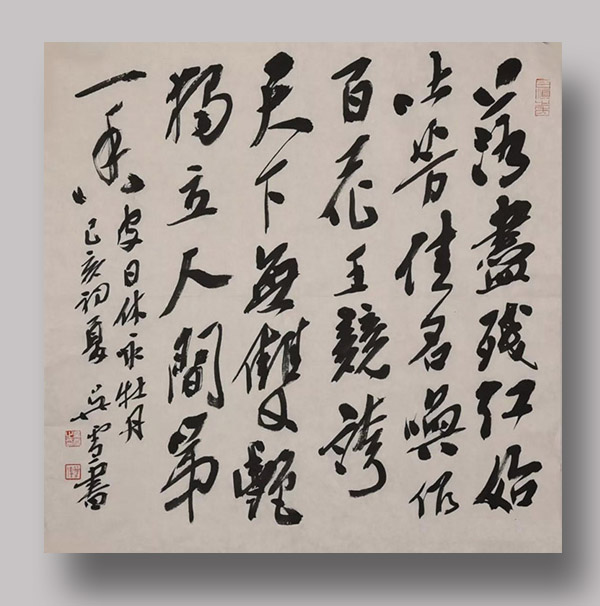 落盡残红始
吐芳佳名喚作
百花王競誇
天下無雙艷
獨立人間第
一香
皮日休咏牡丹
己亥初夏 吴雪書